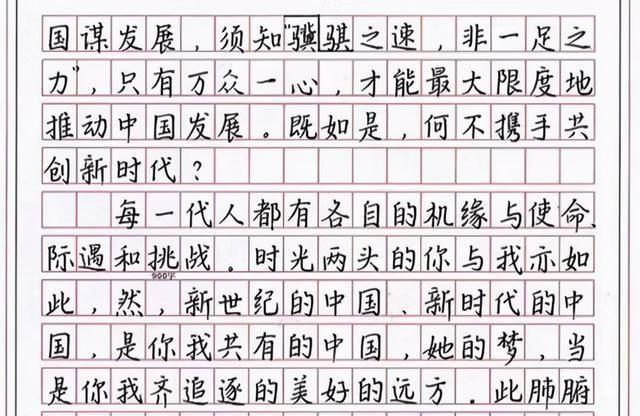 国谋发展，须知“骥骐之速，非一足之
力”，只有万众一心，才能最大限度地
推动中国发展。既如是，何不携手共
创新时代？
每一代人都有各自的机缘与使命、
际遇和挑战。时光两头的你与我亦如
800字
此，然，新世纪的中国、新时代的中
国，是你我共有的中国，她的梦，当
是你我齐追逐的美好的远方。此肺腑